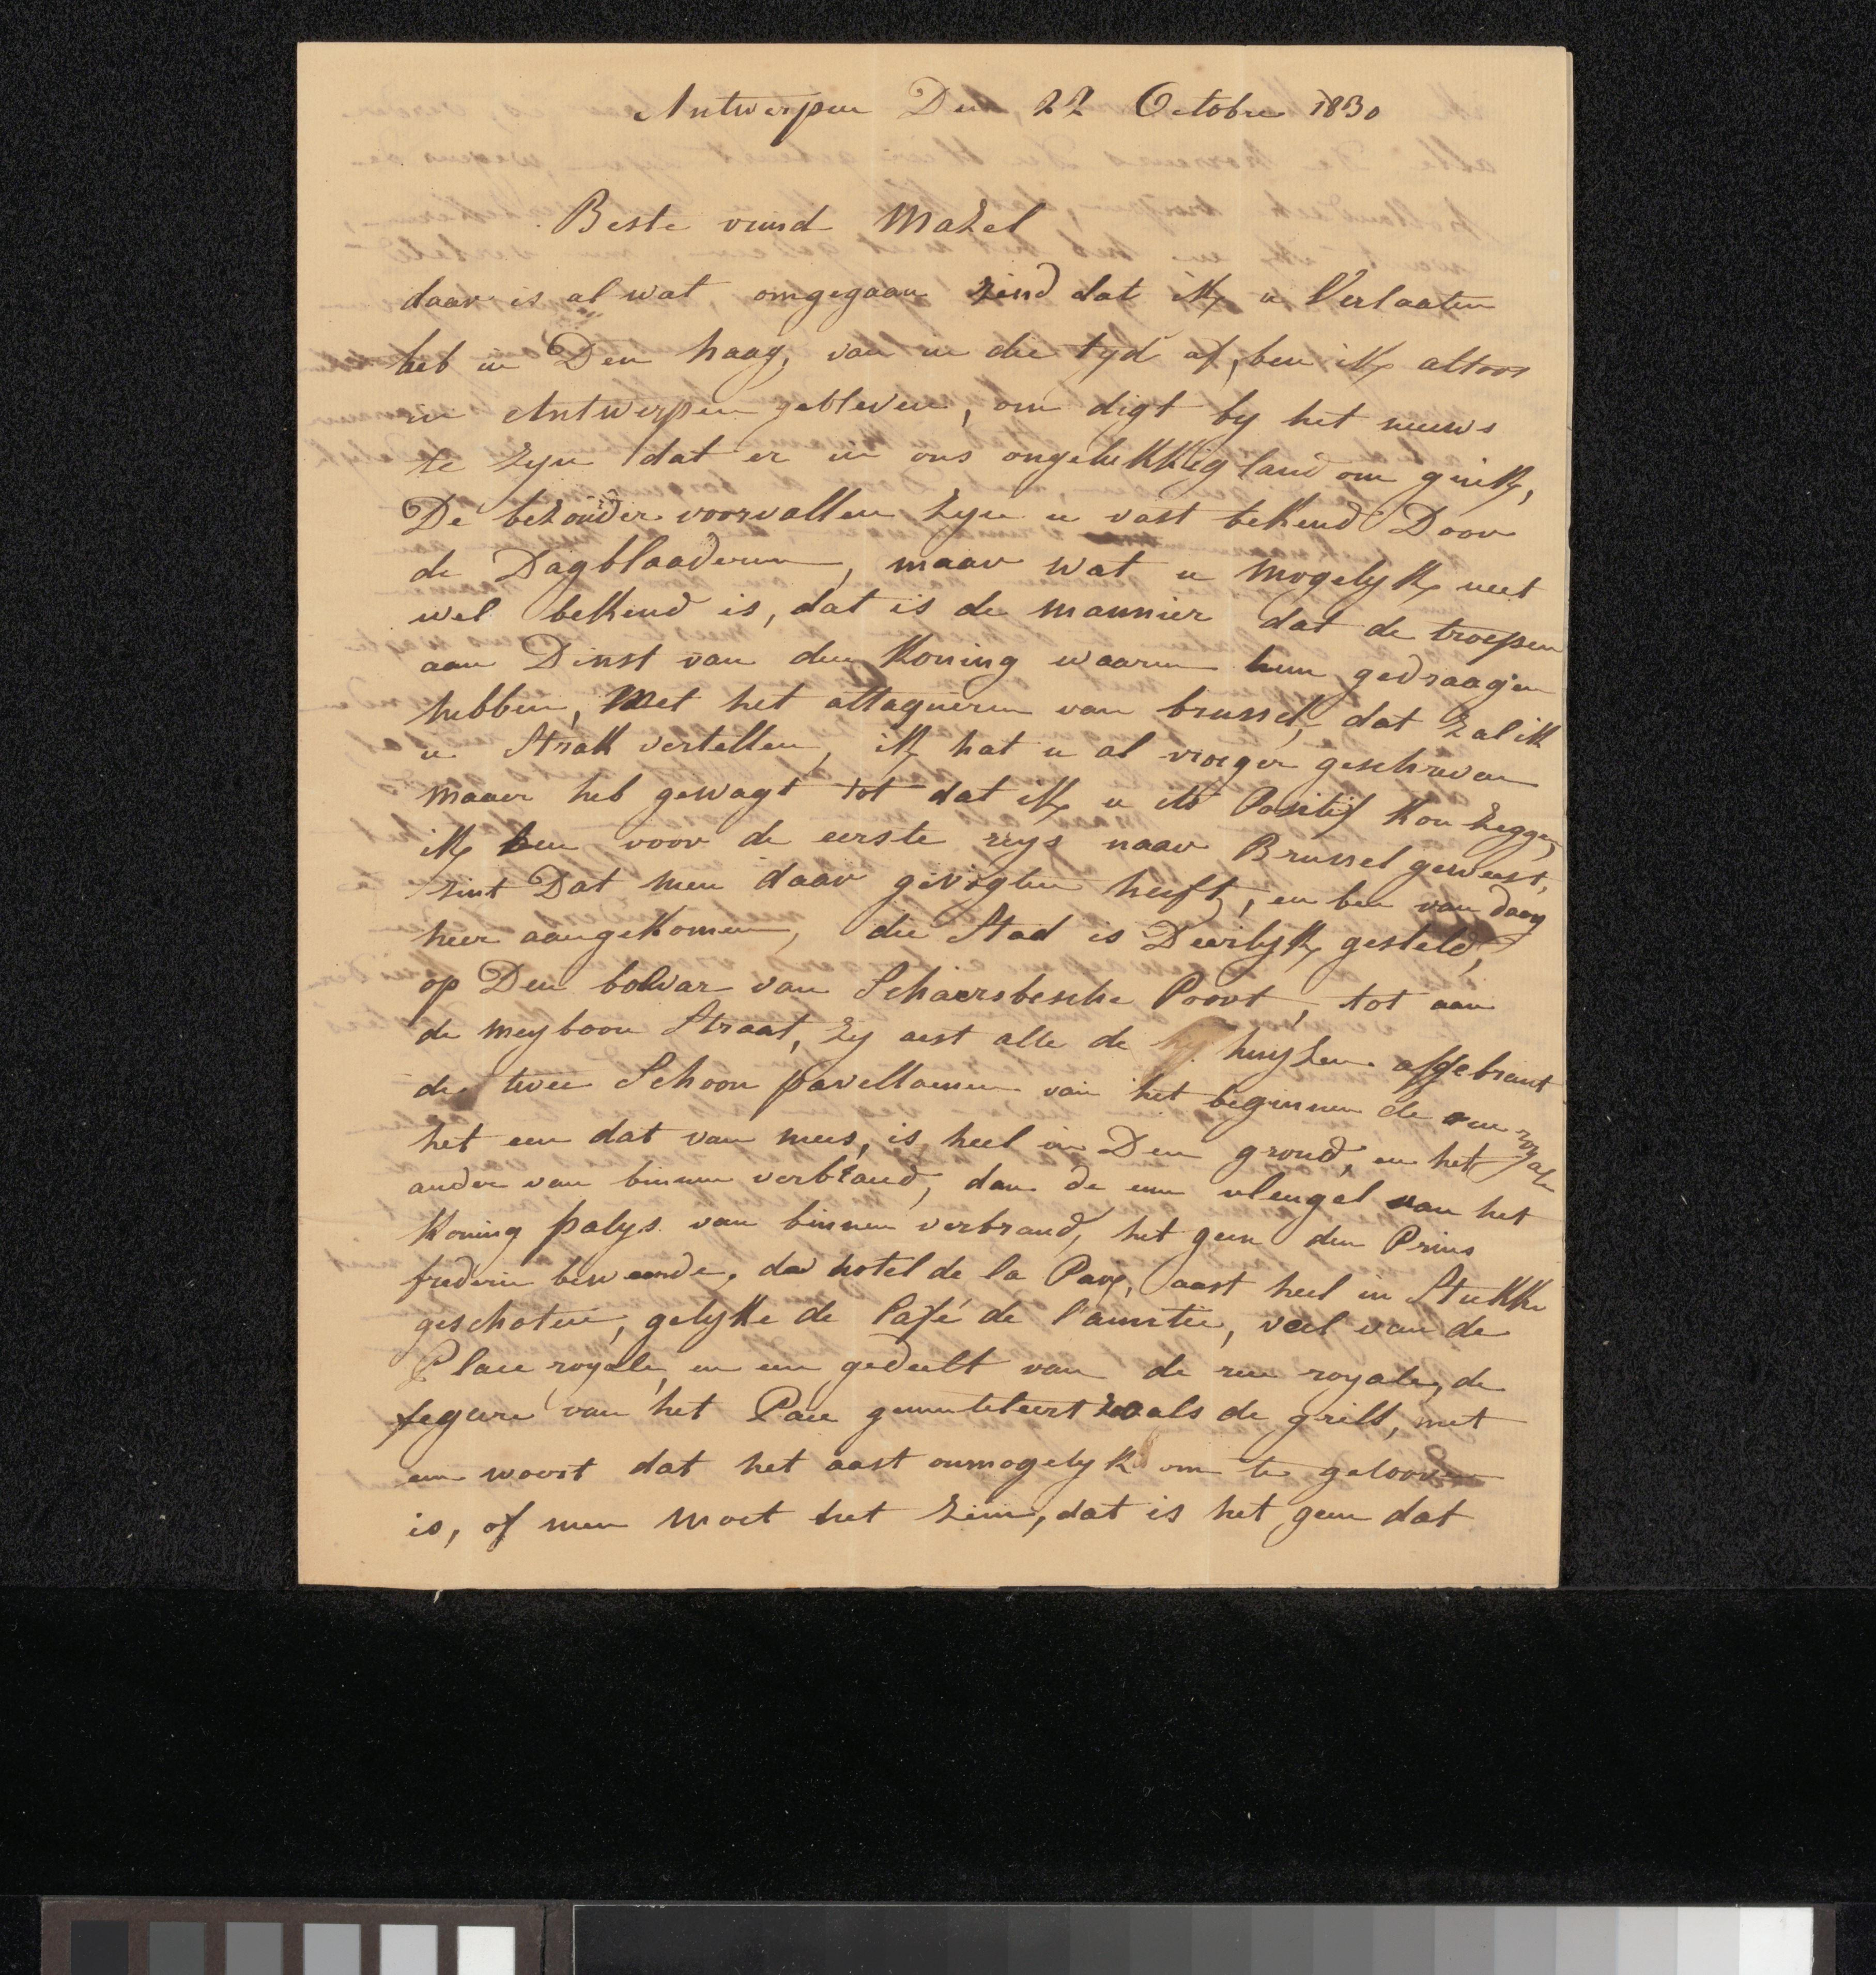 Antwerpen Den 22 Octobre 1830
Beste vriend Mazel
daar is al wat omgegaan zind dat ik u Verlaaten
heb in Den haag, van in die tyd af, ben ik altoos
in Antwerpen gebleven, om digt by het nieuws
te zyn dat er in ons ongelukkkig land om gink,
De bezonder voorvallen zyn u vast bekend Door
de Dagblaaderen, maar wat u mogelyk niet
wel bekend is, dat is de mannier dat de troepen
aan Dinst van den Koning waaren hun gedraagen
hebben, Met het attaqueren van brussel, dat zal ik
u Strak vertellen, ik hat u al vroeger geschreven
maaer heb gewagt tot dat ik u its Positif kon zeggen,
ik ben voor de eerste reys naar Brussel geweest,
sint Dat men daar gevogten heeft, en ben van daag
heer aangekomen, die Stad is Deerlyk gesteld,
op Den bolvar van Schaersbesche Poort, tot aan
de meyboom Straat, zy aest alle de huyzen afgebrant
de twee Schoon pavelloenen van het beginnen de rue royale
het een dat van mees, is heel in Den grond, en het
ander van binnen verbrand, dan de een vleugel van het
Koning palys van binnen verbrand, het geen den Prins
frederic bewoonde, de hotel de la Paix, aast heel in Stukke
geschoten, gelykke de Café de l'amitie, veel van de
Place royale, en een gedeelt van de rue royale, de
fegure van het Parc gemuteleert zoo als de grill, met
een woort dat het aast onmogelyk om te geloove
is, of men moet het zien, dat is het geen dat